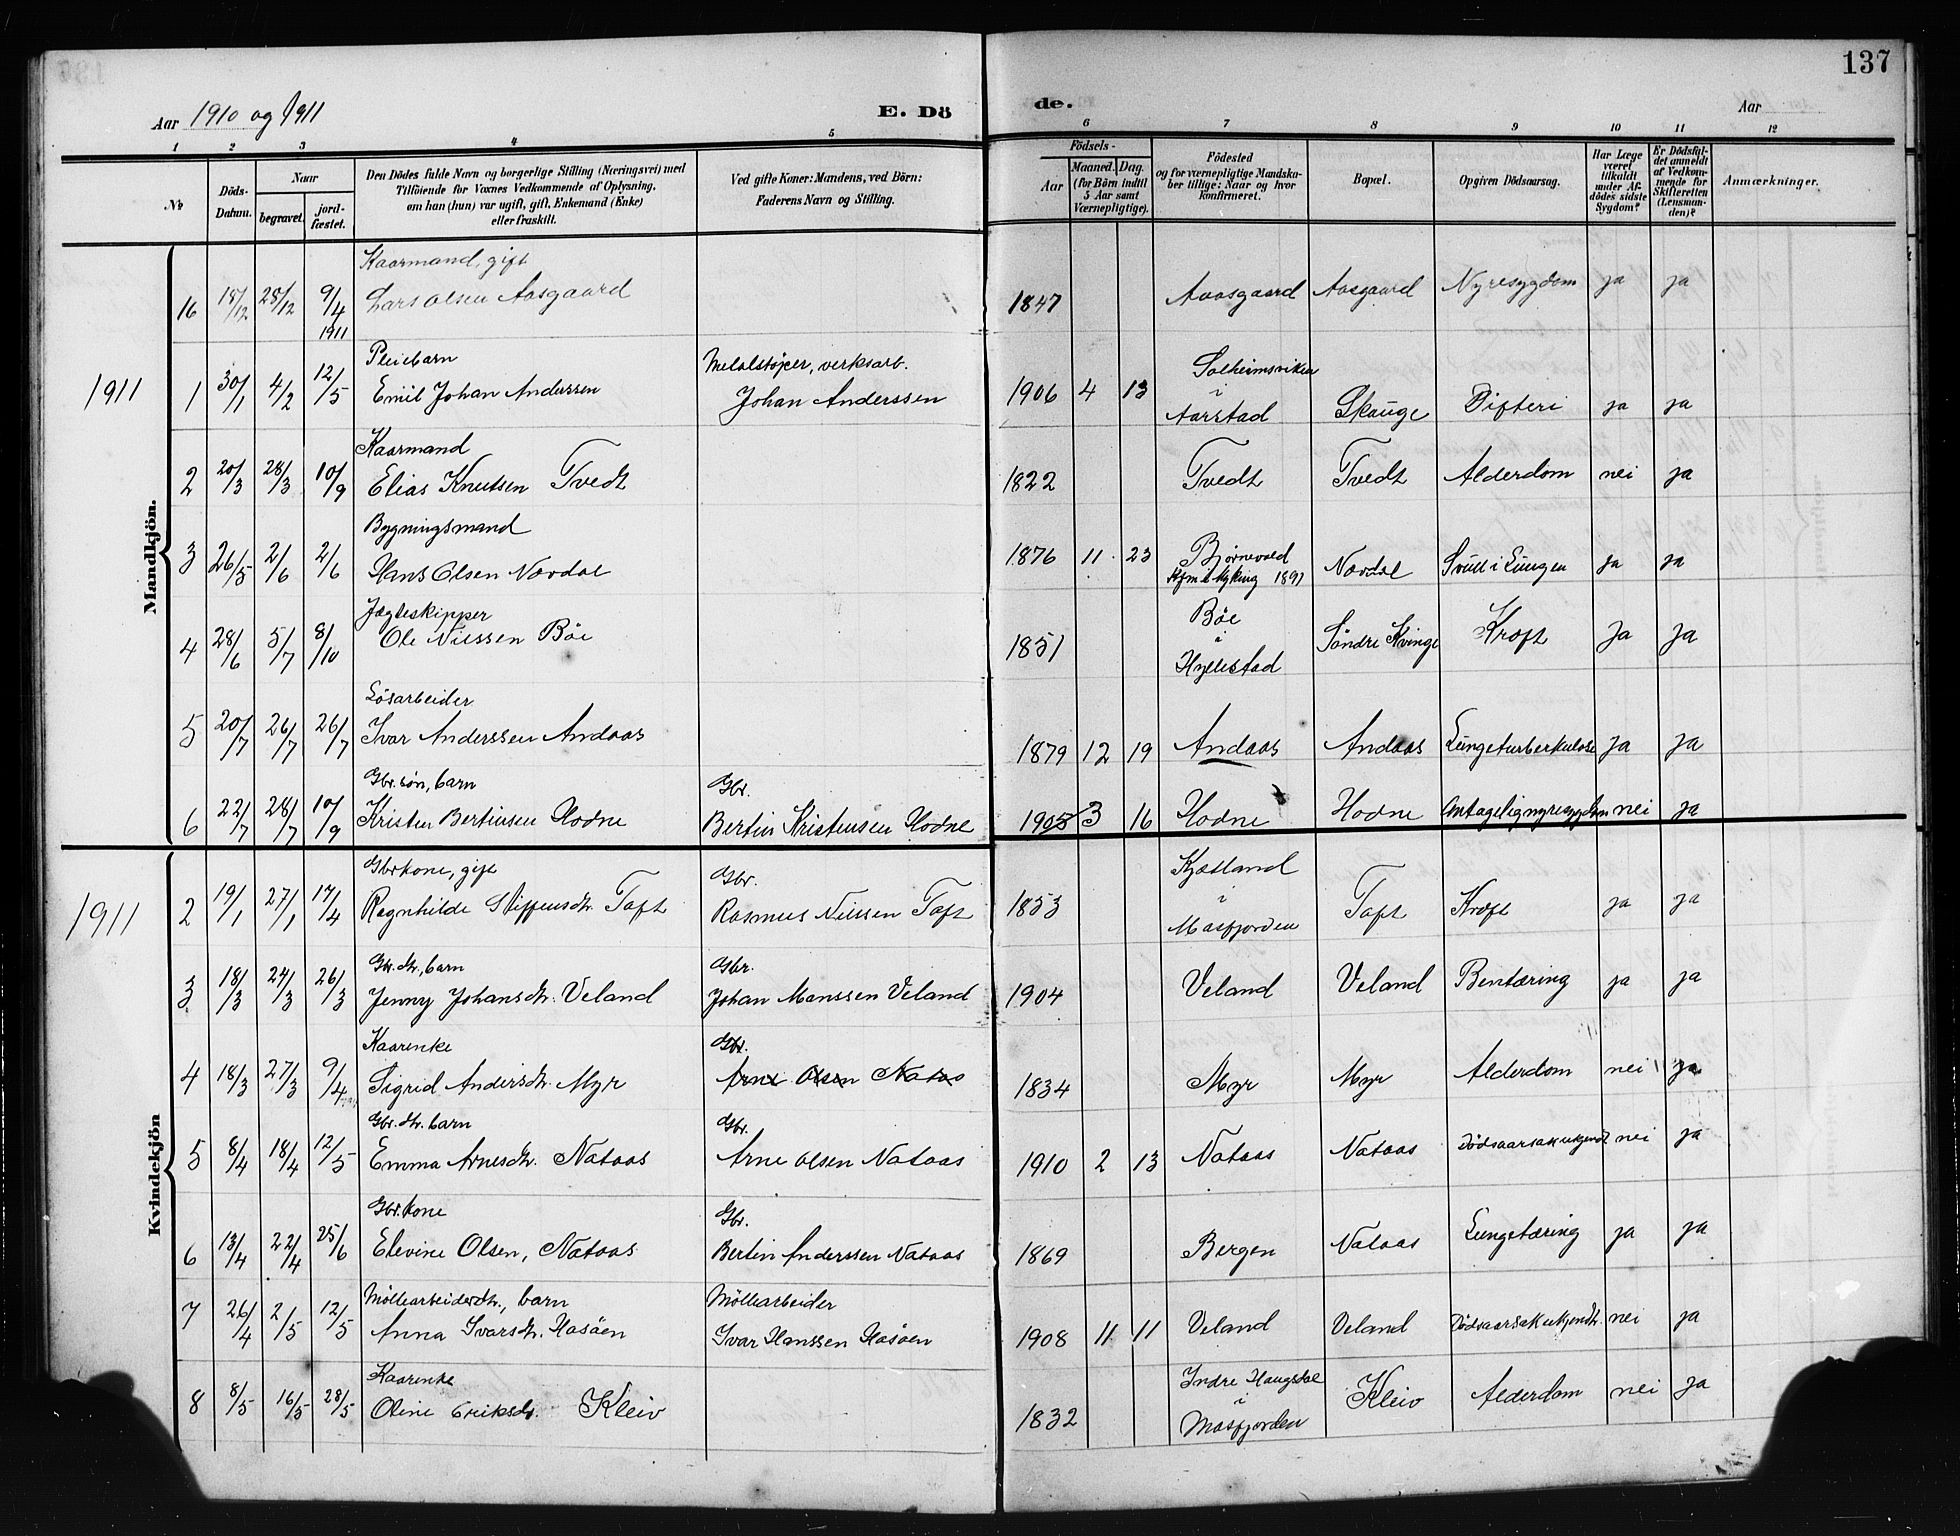 137
Aar 1910 og 1911 E. Dö
de. Aar
1 2 3 4 5 6 7 8 9 10 11 12
№
Döds-Datum.
Naar
begravet.
jord-fæstet.
Den Dödes fulde Navn og borgerlige Stilling (Næringsvei) med
Tilföiende for Voxnes Vedkommende af Oplysning.
om han (hun) var ugift, gift, Enkemand (Enke)
eller fraskilt.
Ved gifte Koner: Mandens, ved Börn:
Faderens Navn og Stilling.
Födsels-
Aar
Maaned. Dag.
(for Børn indtil
5 Aar samt
Værnepligtige).
Födested
og for værnepligtige Mandska-
ber tillige: Naar og hvor
konfirmeret.
Bopæl.
Opgiven Dödsaarsag.
Har Læge
været
tilkaldt
under Af-
dödes sidste
Sygdom?
Er Dödsfal-
det anmeldt
af Vedkom-
mende for
Skifteretten
(Lensman-
den)?
Anmærkninger.
Mandkjön.
Kaarmand, gift
16 18/12 28/12 9/4 1911 Lars Olsen Aasgaard 1847 Aasgaard Nyresygdom ja ja
1911
Pleiebarn Metalstöper, verksarb. Solheimsviken
1 30/1 4/2 12/5 Emil Johan Anderssen Johan Anderssen 1906 4 13 i Aarstad Skauge Difteri ja ja
Kaarmand
2 20/3 28/3 10/9 Elias Knutsen Tvedt 1822 Tvedt Tvedt Alderdom nei ja
Bygningsmand
3 26/5 2/6 2/6 Hans Olsen Nordal 1876 11 23 Bjørnevold 1891 Nordal Svull i Lungen ja ja
Jægteskipper
4 28/6 5/7 8/10 Ole Nilssen Böe 1851 Böe i Hyllestad Söndre Kvinge Kræft Ja Ja
Lösarbeider
5 20/7 26/7 26/7 Ivar Anderssen Andaas 1879 12 19 Andaas Andaas Lungeturberkulose ja ja
Gbr. sön, barn Gbr.
6 22/7 28/7 10/9 Kristen Bertinsen Hodne Bertin Kristensen Hodne 1905 3 16 Hodne Hodne Antagelig nyresygdom nei ja
Kvindekjön
1911
Gbrkone, gift Gbr. Kjetland
2 19/1 27/1 17/4 Ragnhilde Steffensdtr. Toft Rasmus Nilssen Toft 1853 i Masfjorden Toft Kræft ja ja
Gbr. dtr., barn Gbr.
3 18/3 24/3 26/3 Jenny Johansdtr. Veland Johan Monssen Veland 1904 Veland Veland Bentæring ja ja
Kaarenke Gbr.
4 18/3 27/3 9/4 Sigrid Andersdtr. Myr Arne Olsen Nataas 1834 Myr Myr Alderdom nei ja
Gbr. dtr. barn Gbr.
5 8/4 18/4 12/5 Emma Arnesdtr. Nataas Arne Olsen Nataas 1910 2 13 Nataas Nataas Dödsaarsak ukjendt nei ja
Gbr. kone Gbr.
6 13/4 22/4 25/6 Elevine Olsen, Nataas Bertin Anderssen Nataas 1869 Bergen Nataas Lungetæring ja ja
Möllearbeiderdtr., barn Möllearbeider
7 26/4 2/5 12/5 Anna Ivarsdtr. Hasöen Ivar Hanssen Hasöen 1908 11 11 Veland Veland Dödsaarsak ukjendt. nei ja
Kaarenke Indre Haugsdal
8 8/5 16/5 28/5 Oline Eriksdtr. Kleiv 1832 i Masfjorden Kleiv Alderdom nei ja